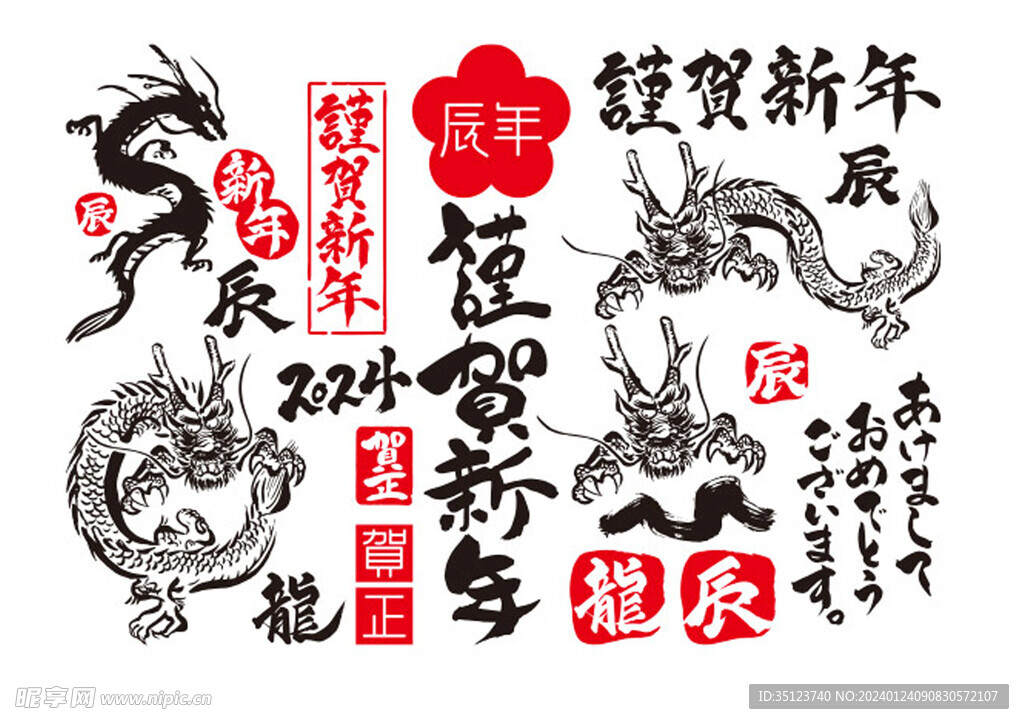 辰
新年
辰
謹賀新年
辰年
謹賀新年
謹賀新年
辰
2024
賀正
賀正
龍
辰
龍
辰
あけまして
おめでとう
ございます。
昵享网 www.nipic.cn
ID:35123740 NO:20240124090830572107